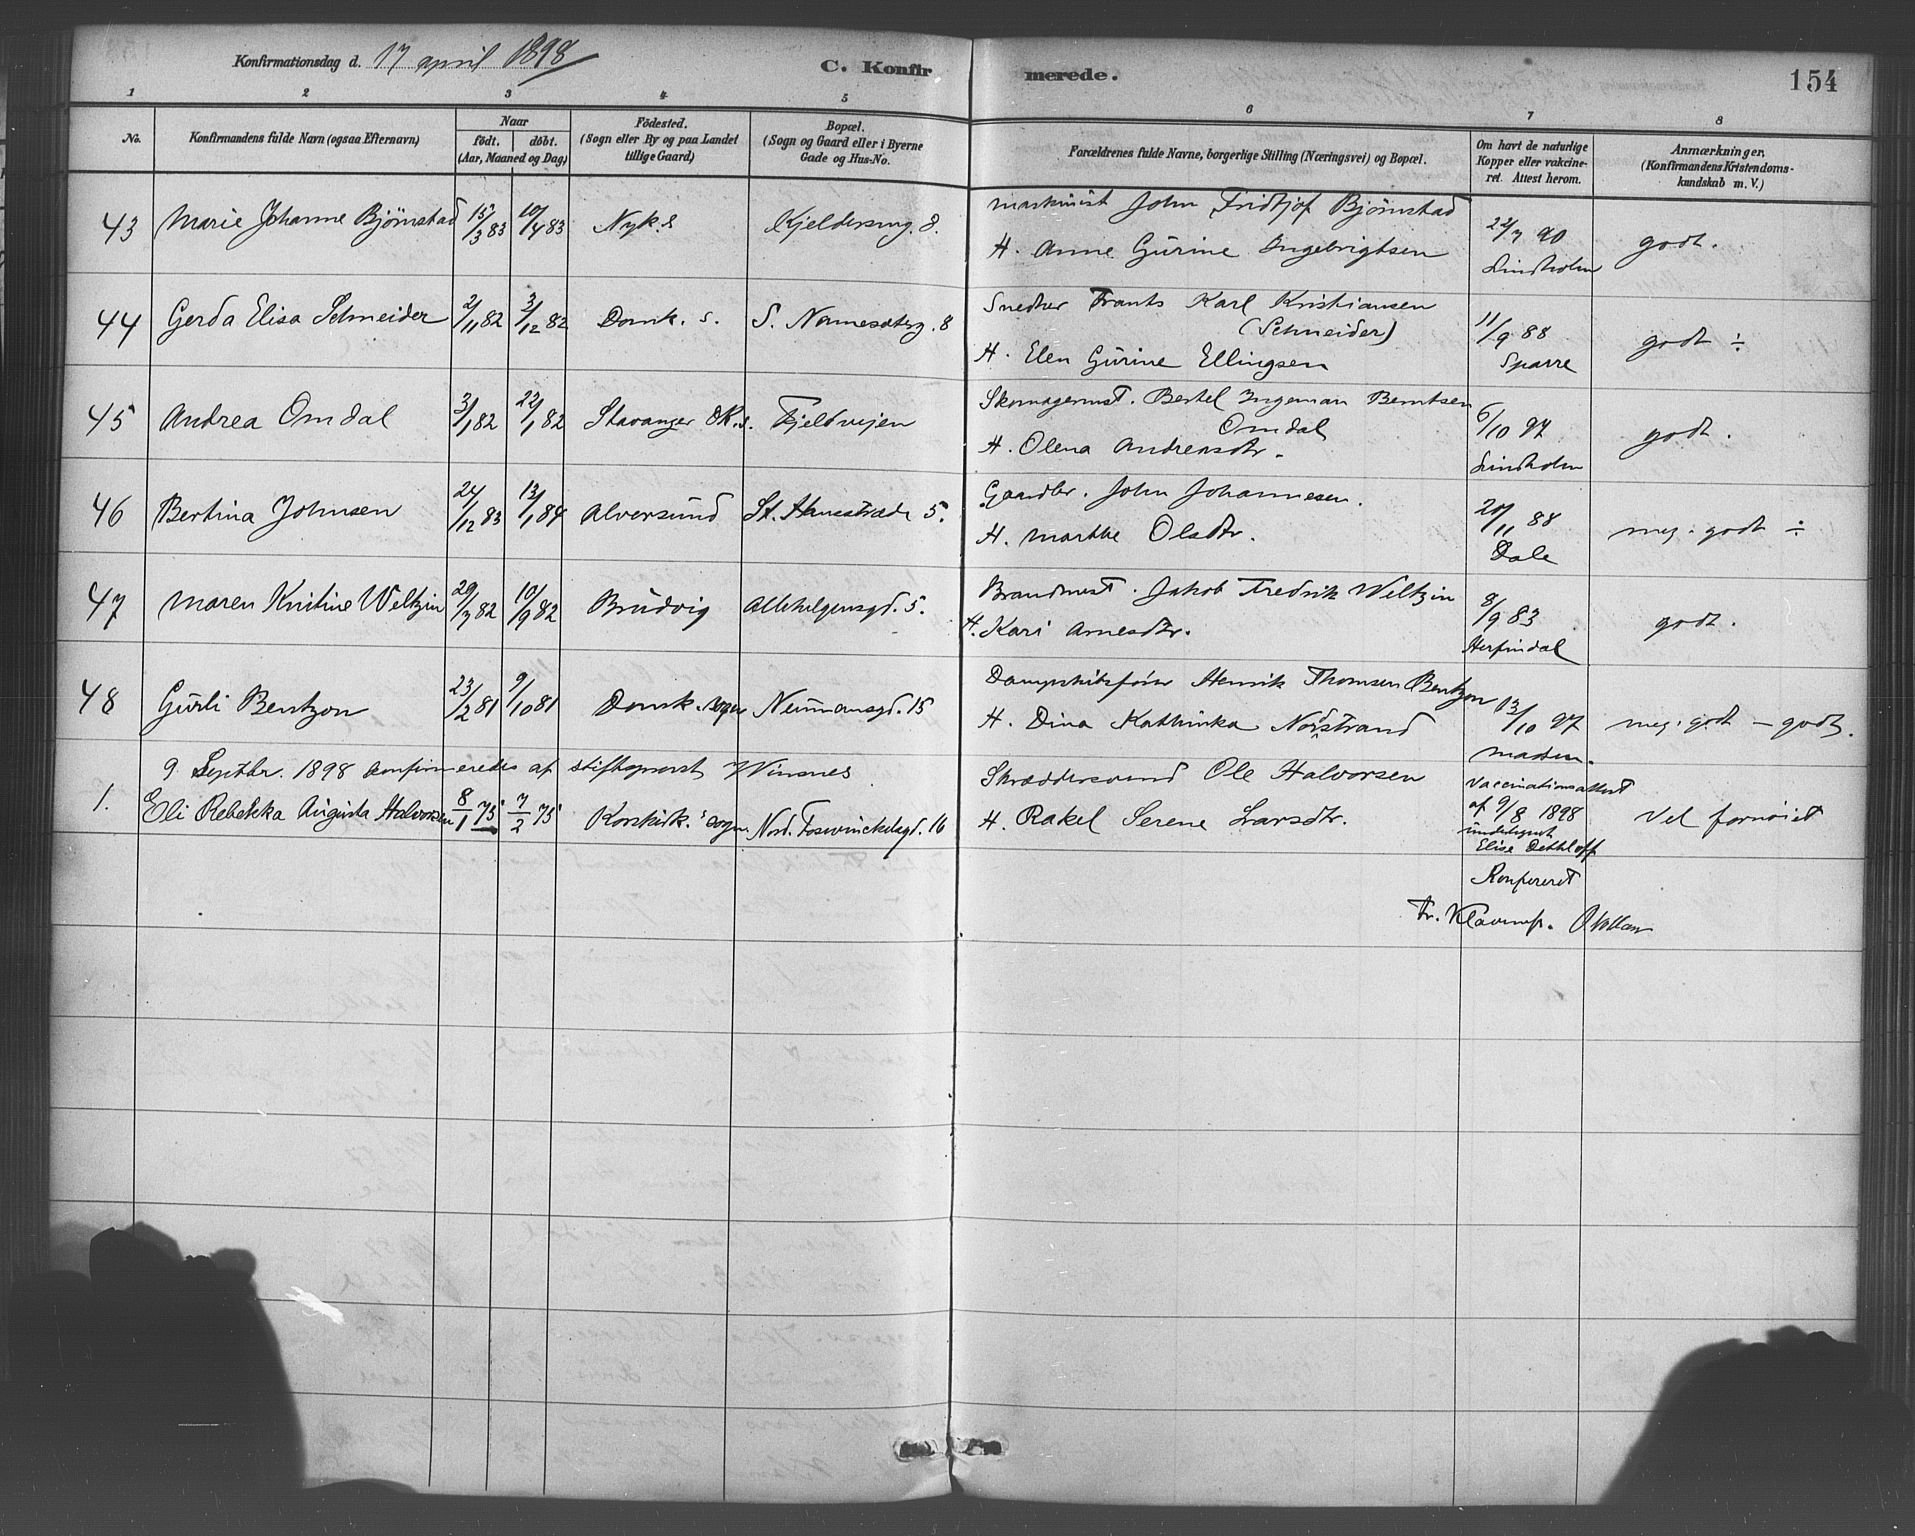 Konfirmationsdag d. 17 april 1898
C. Konfirmerede.
154
1 2 3 4 5 6 7 8
No.
Konfirmandens fulde Navn (ogsaa Efternavn)
Naar
født. døbt.
(Aar, Maaned og Dag)
Födested.
(Sogn eller By og paa Landet
tillige Gaard)
Bopæl.
(Sogn og Gaard eller i Byerne
Gade og Hus-No.
Forældrenes fulde Navne, borgerlige Stilling (Næringsvei) og Bopæl.
Om havt de naturlige
Kopper eller vakcine-
ret. Attest herom.
Anmærkninger,
(Konfirmandens Kristendoms-
kundskab m. V.)
43 Marie Johanne Bjørnstad 15/3 83 10/4 83 Nyk. s Kjeldersmg. 8.
Maskinist John Fridtjof Bjørnstad
H. Anne Gurine Ingebrigtsen
22/7 90
Lindholm
godt.
44 Gerda Elisa Schneider 2/11 82 3/12 82 Domk. s. 8
Snedker Frants Karl Kristiansen
(Schneider)
H. Elen Gurine Ellingsen
11/9 88
Sparre
godt ÷
45 Andrea Omdal 3/1 82 22/1 82 Stavanger DK. s. Fjeldvejen
Skomagermst. Bertel Ingeman Berntsen
Omdal
H. Olena Andreasdtr.
6/10 97
Lindholm
godt.
46 Bertina Johnsen 24/12 83 13/1 84 Alversund St. Hansstræde 5.
Gaardbr. John Johannesen.
H. Marthe Olsdtr.
20/11 88
Dale
meg. godt ÷
47 Maren Kristine Weltzin 29/7 82 10/9 82 Brudvig Allehelgensgd. 5.
Brandmest. Jakob Fredrik Weltzin
H. Kari Arnesdtr.
8/9 83
Herfindal
godt.
48 Gurli Bentzon 23/2 81 9/10 81 Domk. sogn Neumansgd. 15
Dampskibsfører Henrik Thomsen Bentzon
H. Dina Kathinka Nordstrand
13/10 97
Madsen.
meg. godt – godt.
9 Septbr. 1898 konfirmeredes af stiftsprovst Winsnes
1. Eli Rebekka Augusta Halvorsen 8/1 75 7/2 75 Korskirk. sogn. Nord. Foswinckelsgd. 16
Skræddersvend Ole Halvorsen
H. Rakel Serene Larsdtr.
Vaccinationsattest
af 9/8 1898
undertegnet
Elise Dethloff
Vel fornøiet
Konfereret
Fr. Klavenæs.